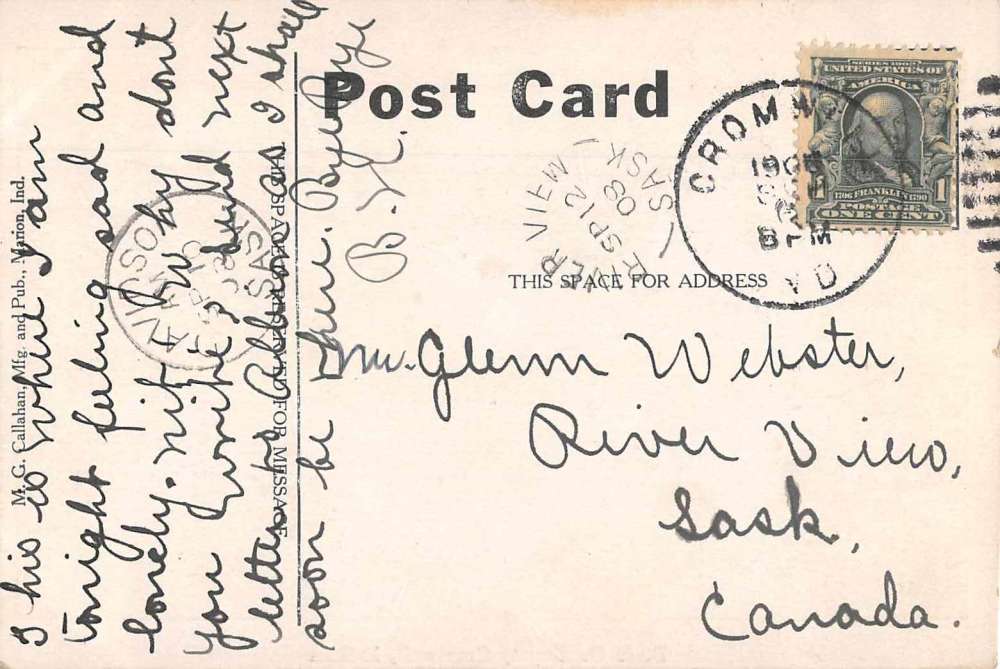 Post Card
THIS SPACE FOR ADDRESS
THIS SPACE RESERVED FOR MESSAGE
M. G. Callahan, Mfg. and Pub., Marion, Ind.
SERIES 1902
UNITED STATES OF
AMERICA
1706 FRANKLIN 1790
POSTAGE
ONE CENT
1
CROMW
8 PM
RIVER VIEW
SP 12
08
SASK
DAVIDSON
SASK
Mr. Glenn Webster,
River View,
Sask,
Canada.
This is where I am
tonight feeling sad and
lonely. Nit. Why dont
you write? Send next
letter to as I shall
soon be there. Bye Bye